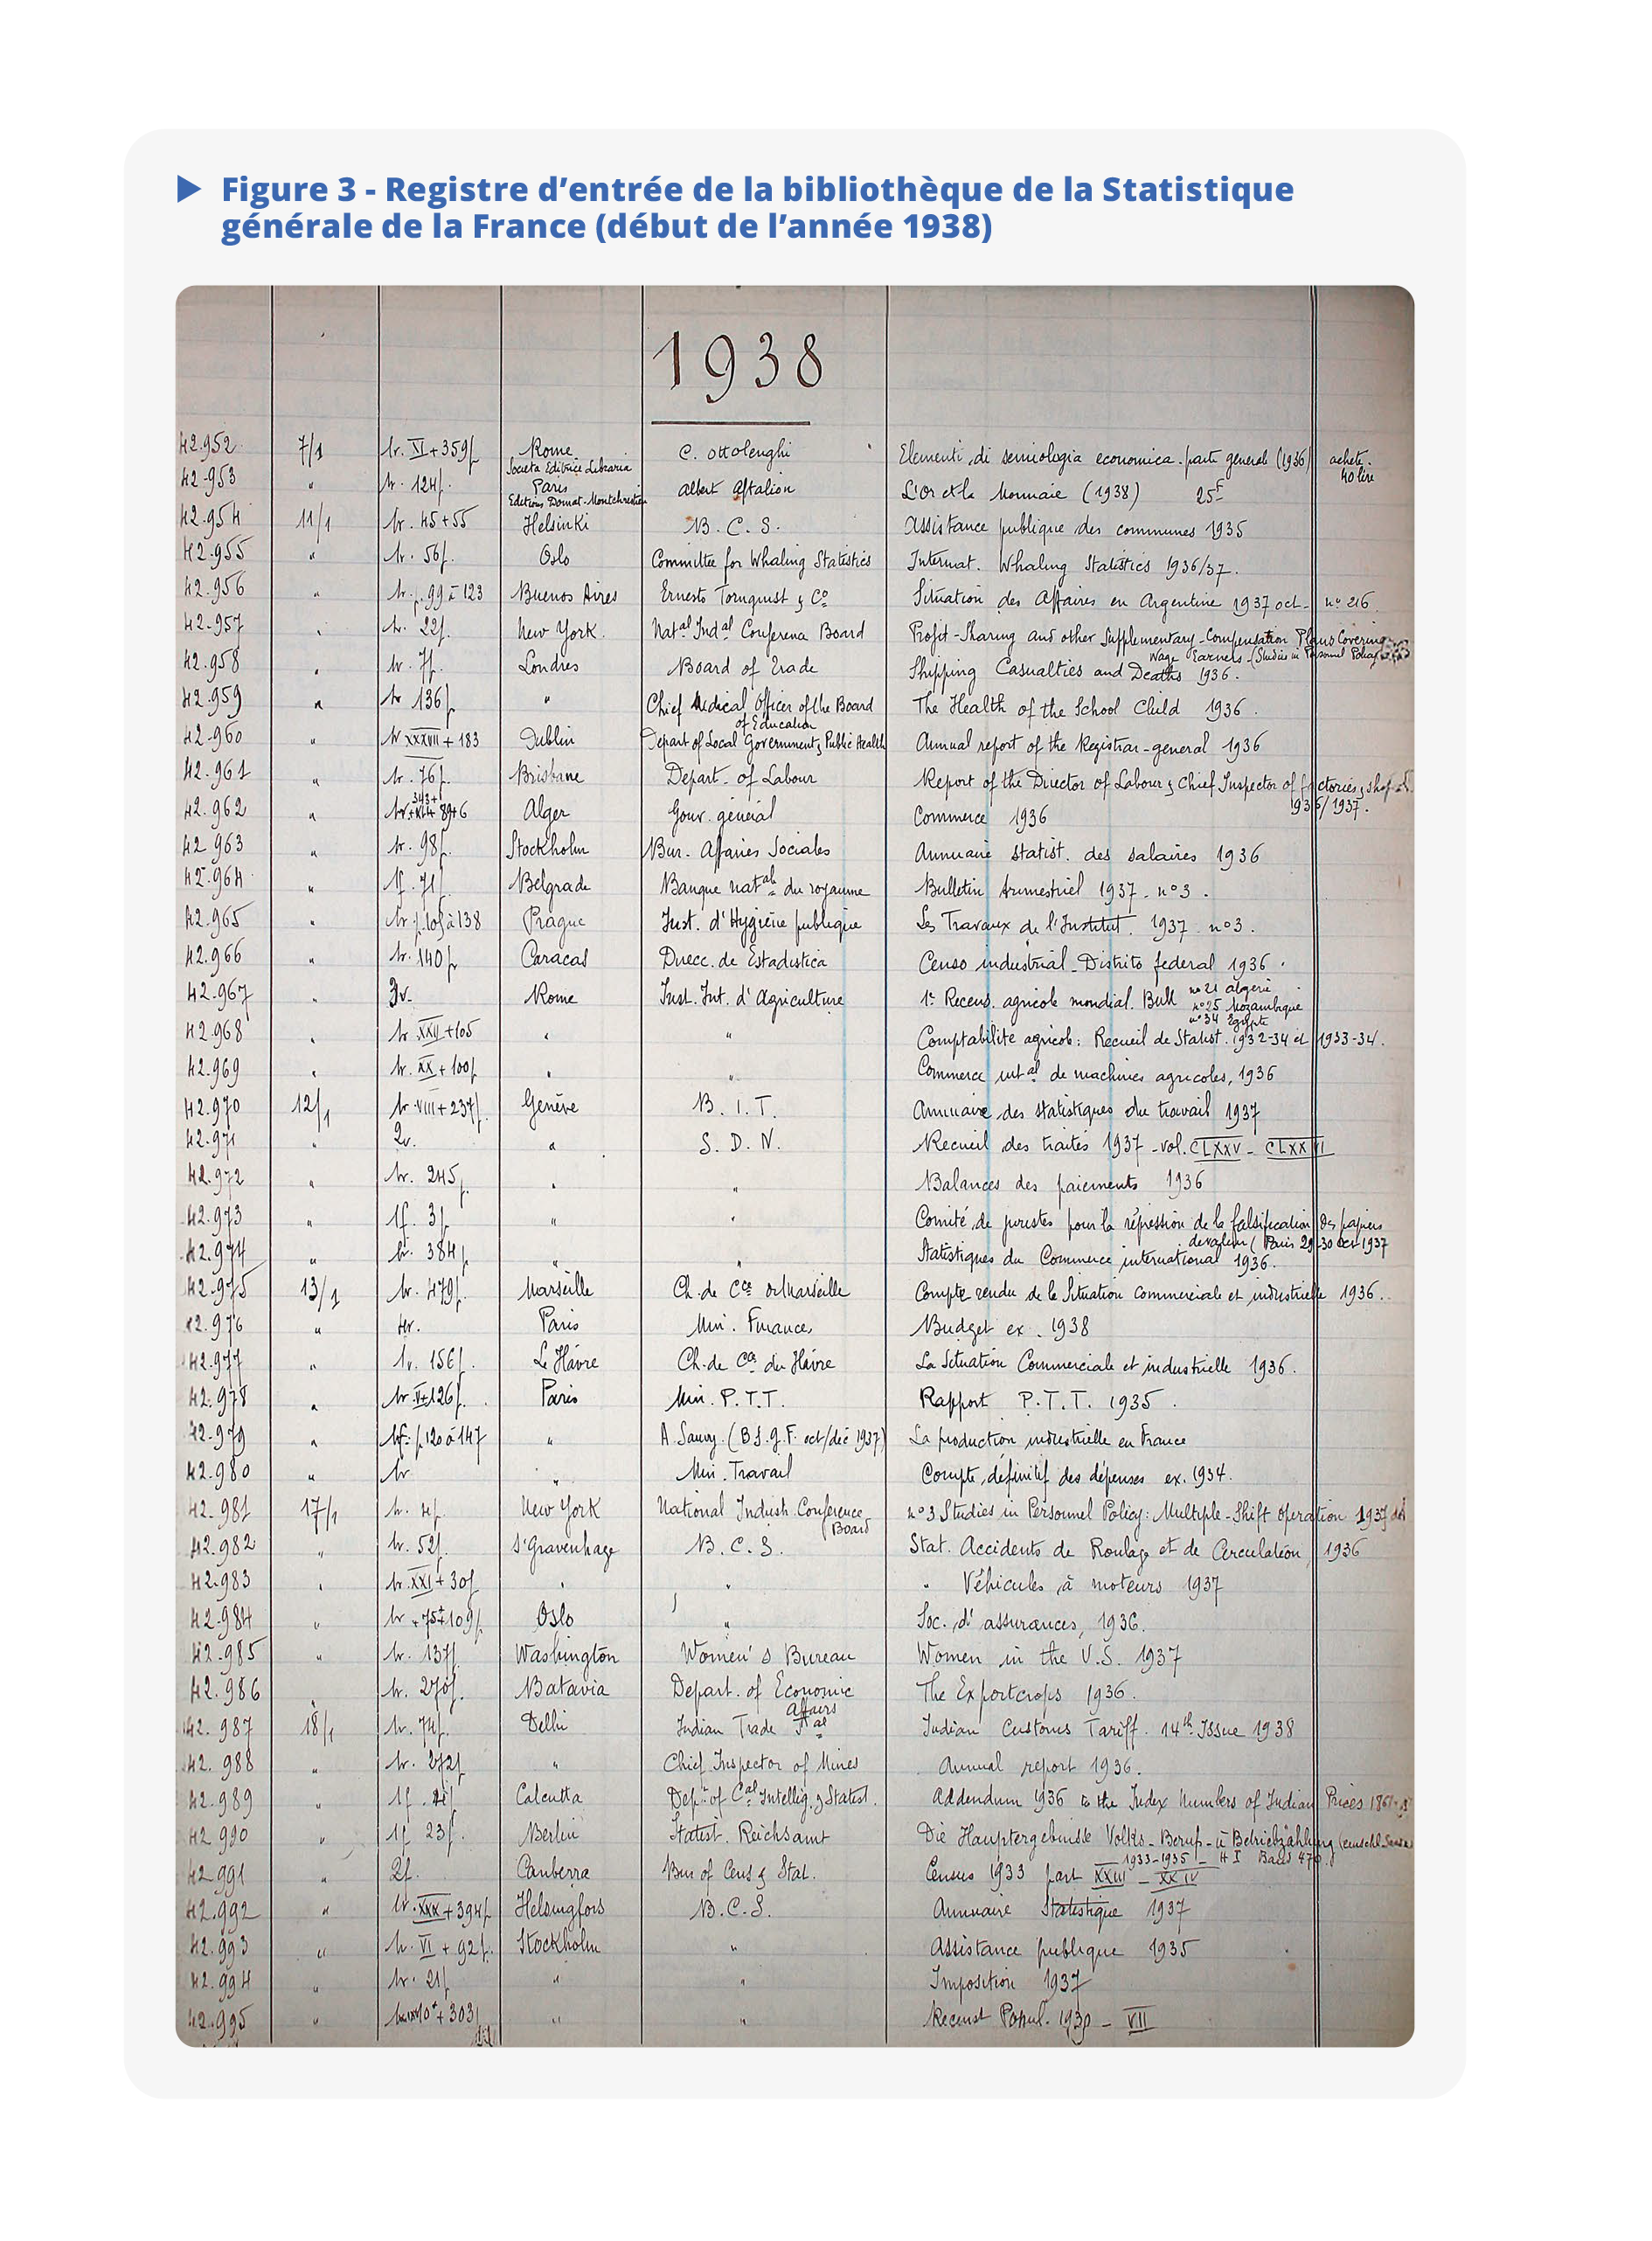 Figure 3 - Registre d’entrée de la bibliothèque de la Statistique
générale de la France (début de l’année 1938)
1938
42.952 7/1 br. VI+359p Rome C. Ottolenghi Elementi di semiologia economica - parte general (1936) acheté
Societa Editrice Libraria 40 lire
42.953 " br. 124p. Paris Albert Aftalion L'Or et la Monnaie (1938) 25F
Editions Domat-Montchrestien
42.954 11/1 br. 45+55 Helsinki B.C.S. Assistance publique des communes 1935
42.955 " br. 56p. Oslo Committee for Whaling Statistics Internat. Whaling Statistics 1936/37.
42.956 " br. p. 99 à 123 Buenos Aires Ernesto Tornquist & Co Situation des Affaires en Argentine 1937 oct- n° 216
42.957 " br. 22p. New York. Natal Indal Conference Board Profit-Sharing and other Supplementary-Compensation Plans Covering
Wage Earners-(Studies in Personnel Policy
42.958 " br. 7p. Londres Board of Trade Shipping Casualties and Deaths 1936.
42.959 " br 136p " Chief Medical Officer of the Board The Health of the School Child 1936.
of Education
42.960 " br XXXVII + 183 Dublin Depart of Local Government & Public Health Annual report of the Registrar-general 1936
42.961 " br. 76p. Brisbane Depart. of Labour Report of the Director of Labour & Chief Inspector of factories & shops
1936/1937.
42.962 " Alger Gouv. général Commerce 1936
42.963 " br. 98p. Stockholm Bur. Affaires Sociales Annuaire statist. des salaires 1936
42.964 " 1f. 71p. Belgrade Banque natale du royaume Bulletin trimestriel 1937 - n°3.
42.965 " br. p. 109 à 138 Prague Inst. d'Hygiène publique Les Travaux de l'Institut. 1937 n°3.
42.966 " br. 140p Caracas Direcc. de Estadistica Censo industrial - Distrito federal 1936.
42.967 " 3v. Rome Inst. Int. d'Agriculture 1er Recens. agricole mondial. Bull n° 21 Algérie
n°25 Mozambique
n°34 Egypte
42.968 " br XXII+105 " " Comptabilité agricole: Recueil de Statist. 1932-34 et 1933-34.
42.969 " br. XX+100p " " Commerce intal de machines agricoles, 1936
42.970 12/1 br VIII+237p. Genève B.I.T. Annuaire des statistiques du travail 1937
42.971 " 2v. " S.D.N. Recueil des traités 1937 - vol. CLXXV - CLXXVI
42.972 " br. 245p. " " Balances des paiements 1936
42.973 " 1f. 3p " " Comité de juristes pour la répression de la falsification des papiers
de valeur (Paris 29-30 oct-1937
42.974 " br. 384p " " Statistiques du Commerce international 1936.
42.975 13/1 br. 479p. Marseille Ch. de Cce de Marseille Compte rendu de la Situation commerciale et industrielle 1936.
42.976 " Paris Min. Finances Budget ex. 1938
42.977 " 1v. 156p. Le Hâvre Ch. de Cce du Hâvre La Situation Commerciale et industrielle 1936.
42.978 " br. V+126p. Paris Min. P.T.T. Rapport P.T.T. 1935.
42.979 " p 120 à 147 " A. Sauvy. (B.S.G.F. oct/déc 1937) La production industrielle en France
42.980 " br " Min. Travail Compte définitif des dépenses ex. 1934.
42.981 17/1 br. 4p. New York National Indust. Conference n°3 Studies in Personnel Policy: Multiple-Shift Operation 1937
Board
42.982 " br. 52p. s'Gravenhage B.C.S. Stat. Accidents de Roulage et de Circulation 1936
42.983 " br. XXI+30p " " " Véhicules à moteurs 1937
42.984 " br 75+109p. Oslo " Soc. d'assurances, 1936.
42.985 " br. 137p. Washington Women's Bureau Women in the U.S. 1937
42.986 " br. 270p. Batavia Depart. of Economic The Exportcrops 1936.
Affairs
42.987 18/1 br. 74p. Delhi Indian Trade Jal Indian Customs Tariff. 14th Issue 1938
42.988 " br. 272p " Chief Inspector of Mines Annual report 1936.
42.989 " 1f. Calcutta Dept of Cal Intellig. & Statist. Addendum 1936 to the Index Numbers of Indian Prices
42.990 " 1f 23p. Berlin Statist. Reichsamt Die Hauptergebnisse Volks-Beruf-u Betriebzählung
1933-1935 - H I Band 470.
42.991 " 2f. Canberra Bur of Cens & Stat. Census 1933 part XXIII - XXIV
42.992 " br. XXX+394p Helsingfors B.C.S. Annuaire Statistique 1937
42.993 " br. VI+92p. Stockholm " Assistance publique 1935
42.994 " br. 21p " " Imposition 1937
42.995 " + 303p " " Recenst Popul. 1930 - VII